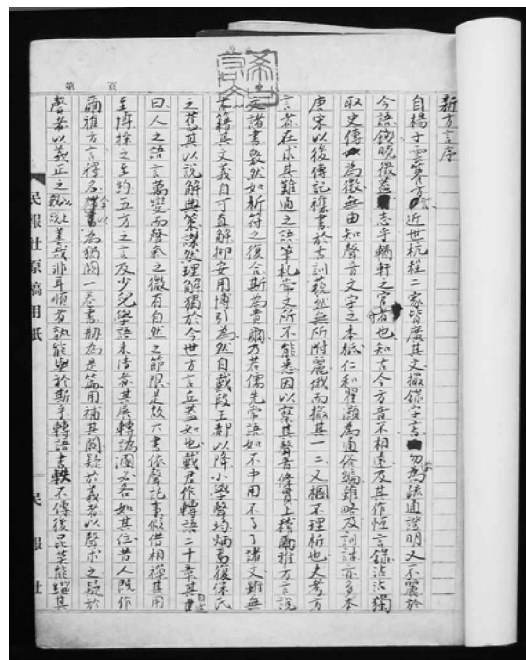 新方言序
自楊子雲纂方言近世杭程二家皆廣其文撮錄字書勿為疏通證明又不麗於
今語錢曉徵蓋志乎輶軒之官者也知古今方音不相遠及其作恆言錄沾沾獨
取史傳為徵無由知聲音文字之本柢仁和翟灝為通俗編雖略及訓詁亦多本
唐宋以後傳記襍書於古訓藐然無所附麗俄而撮其一二又楓不理析也夫考方
言者在求其難通之語筆札常文所不能悉因以察其聲音條貫上稽爾雅方言說
文諸書裂然如析符之復合斯為貴爾乃若儒先常語如不中用不了了諸文雖無
古籍其文義自可直解抑安用博引為然自戴段王郝以降小學聲均炳焉復保氏
之舊其以說解典策諜然理解獨於今世方言丘蓋如也戴君作轉語二十章其自述
曰人之語言萬變而聲氣之微有自然之節限是故六書依聲託事假借相禪其用
至博操之至約五方之言及少兒學語未清者其展轉譌溷必各如其位昔人既作
爾雅方言釋名余以為猶闕一卷書刱為是篇用補其闕疑於義者以聲求之疑於
聲者以義正之美哉非耳順者孰能與於斯乎轉語書軼不傳後昆莫能繼其
第 頁
民報社原稿用紙
民報社